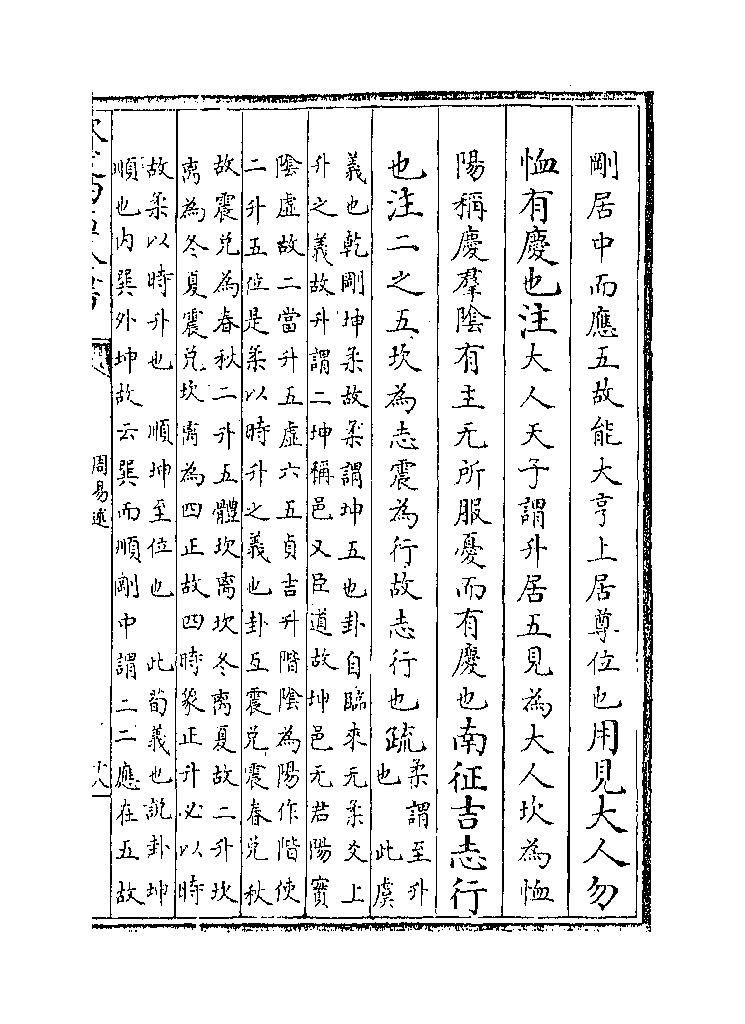 剛居中而應五故能大亨上居尊位也用見大人勿
恤有慶也注大人天子謂升居五見為大人坎為恤
陽稱慶羣陰有主无所服憂而有慶也南征吉志行
也注二之五坎為志震為行故志行也疏
柔謂至升
也　此虞
義也乾剛坤柔故柔謂坤五也卦自臨來无柔爻上
升之義故升謂二坤稱邑又臣道故坤邑无君陽實
陰虛故二當升五虛六五貞吉升階陰為陽作階使
二升五位是柔以時升之義也卦互震兌震春兌秋
故震兌為春秋二升五體坎离坎冬离夏故二升坎
离為冬夏震兌坎离為四正故四時象正升必以時
故柔以時升也　順坤至位也　此荀義也說卦坤
順也內巽外坤故云巽而順剛中謂二二應在五故
周易述